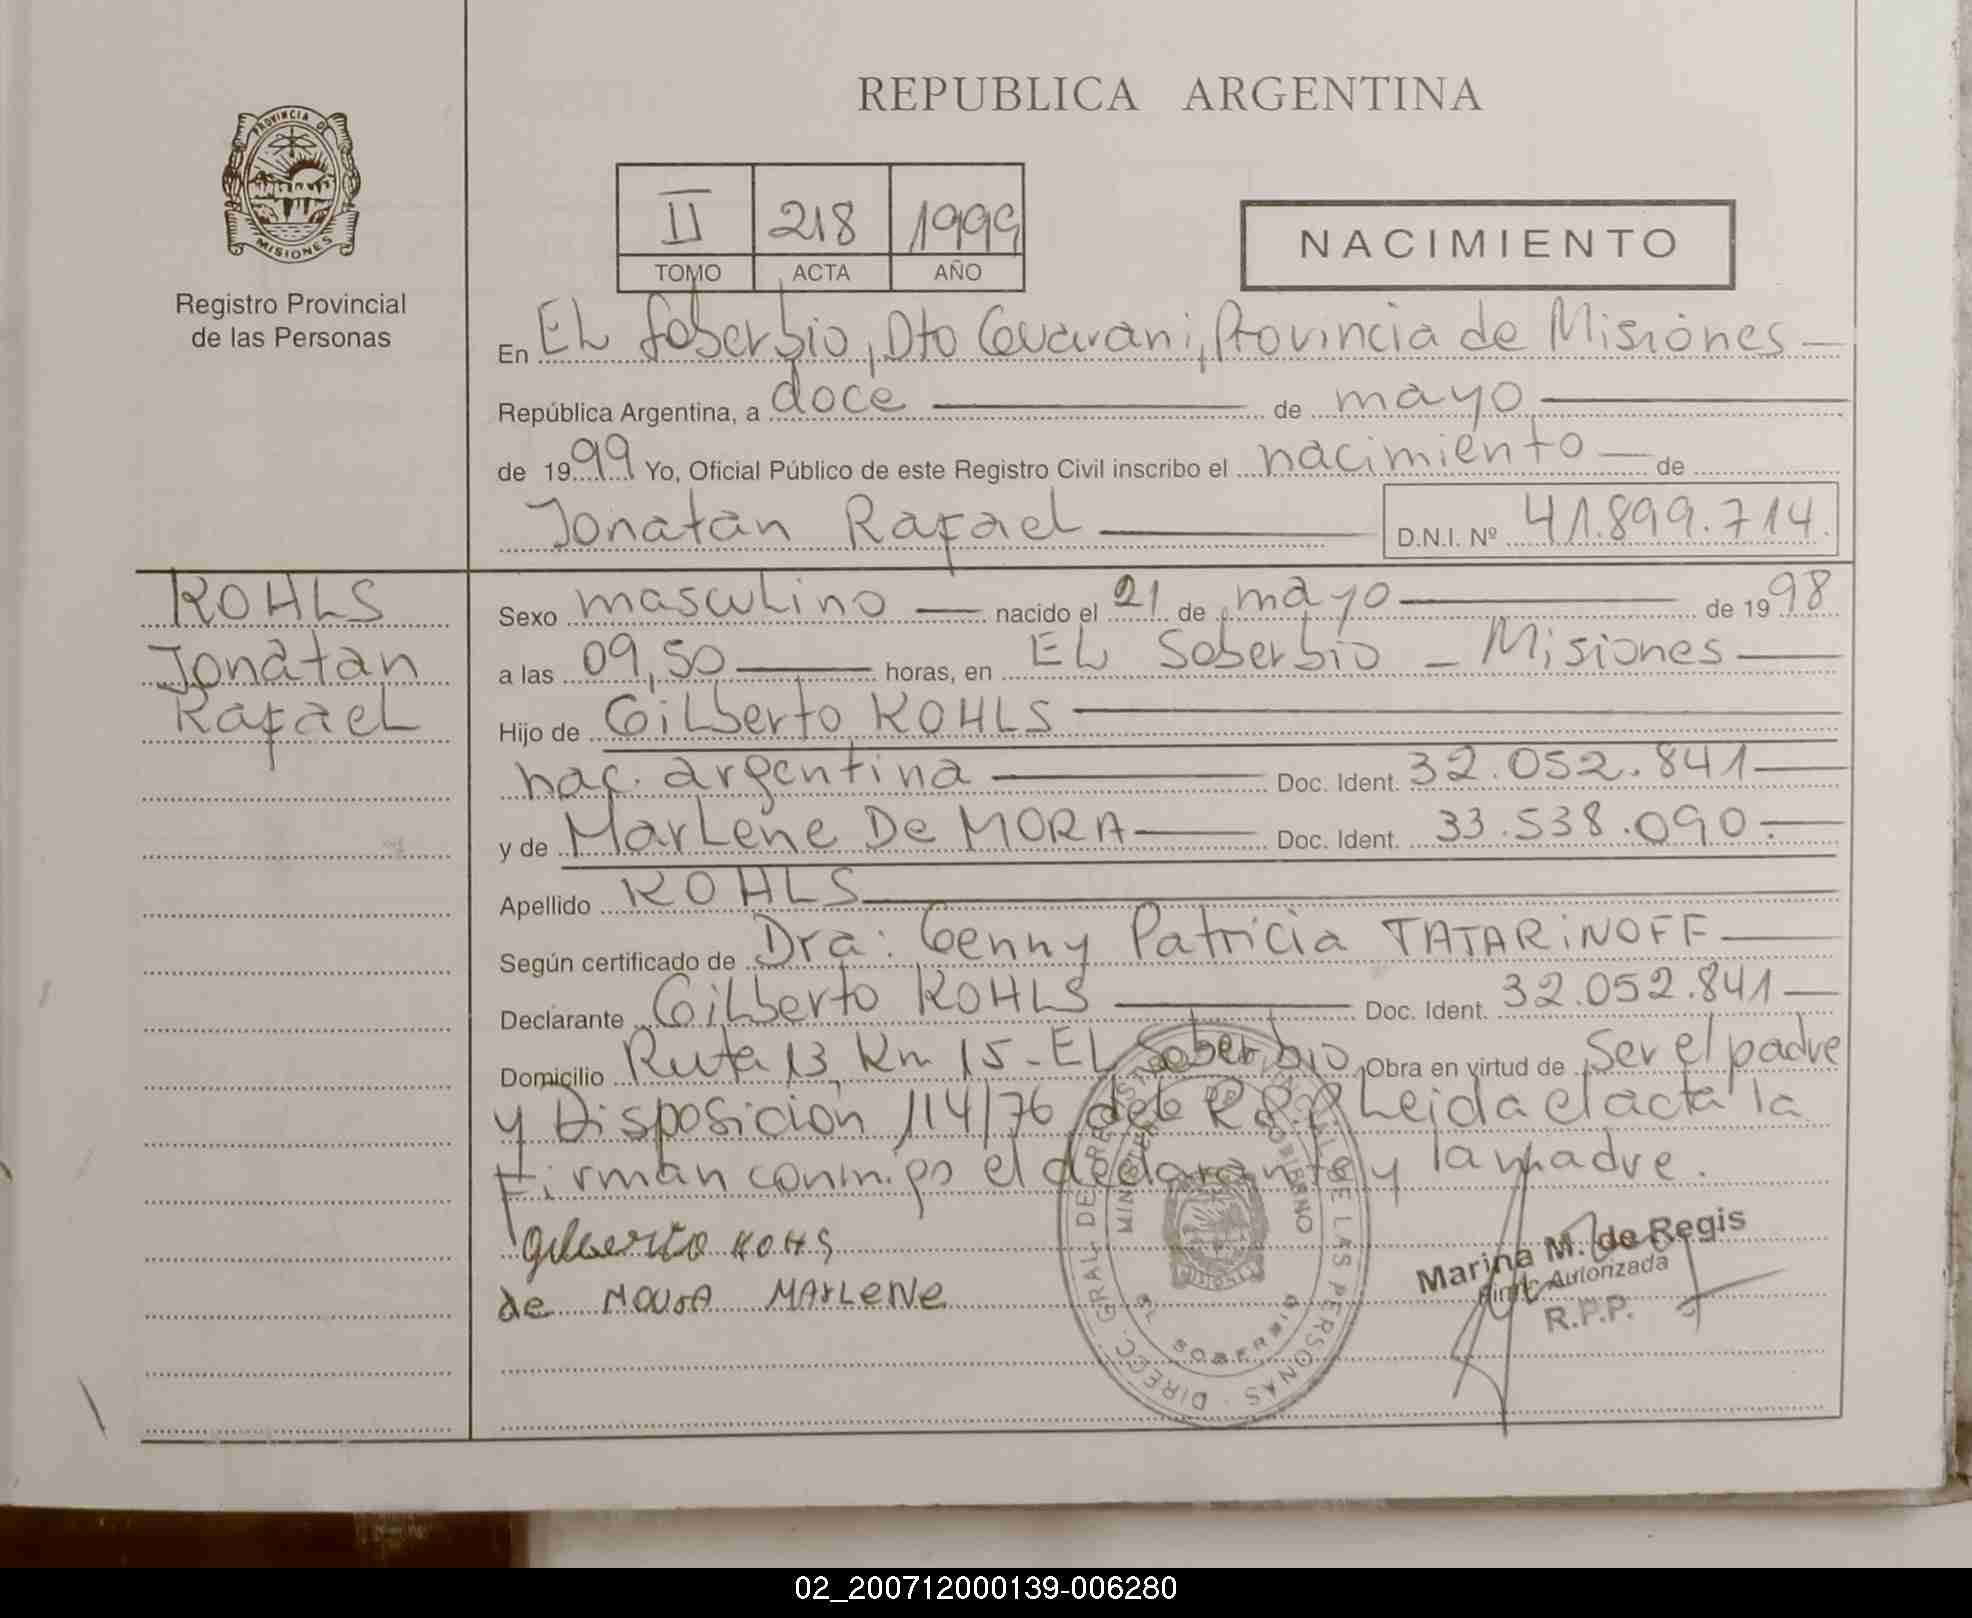 REPUBLICA ARGENTINA
PROVINCIA DE
MISIONES
Registro Provincial
de las Personas
II 218 1999
TOMO ACTA AÑO
NACIMIENTO
En EL Soberbio, Dto Guarani, Provincia de Misiones
República Argentina, a doce de mayo
de 1999 Yo, Oficial Público de este Registro Civil inscribo el nacimiento de
Jonatan Rafael D.N.I. Nº 41.899.714.
KOHLS
Jonatan
Rafael
Sexo masculino nacido el 21 de mayo de 1998
a las 09,50 horas, en EL Soberbio - Misiones
Hijo de Gilberto KOHLS
nac. argentina Doc. Ident. 32.052.841
y de Marlene De MORA Doc. Ident. 33.538.090.
Apellido KOHLS
Según certificado de Dra: Genny Patricia TATARiNOFF
Declarante Gilberto KOHLS Doc. Ident. 32.052.841
Domicilio Ruta 13, Km 15 - EL Soberbio Obra en virtud de Ser el padre
y Disposición 114/76 del R.P.P Leida el acta la
Firman conmigo el declarante y la madre.
gilberto KOHS
de MOURA MARLENE
DIRECC. GRAL. DE REGISTRO PROVINCIAL DE LAS PERSONAS
MINISTERIO DE GOBIERNO
MISIONES
EL SOBERBIO
Marina M. de Regis
Firma Autorizada
R.P.P.
02_200712000139-006280